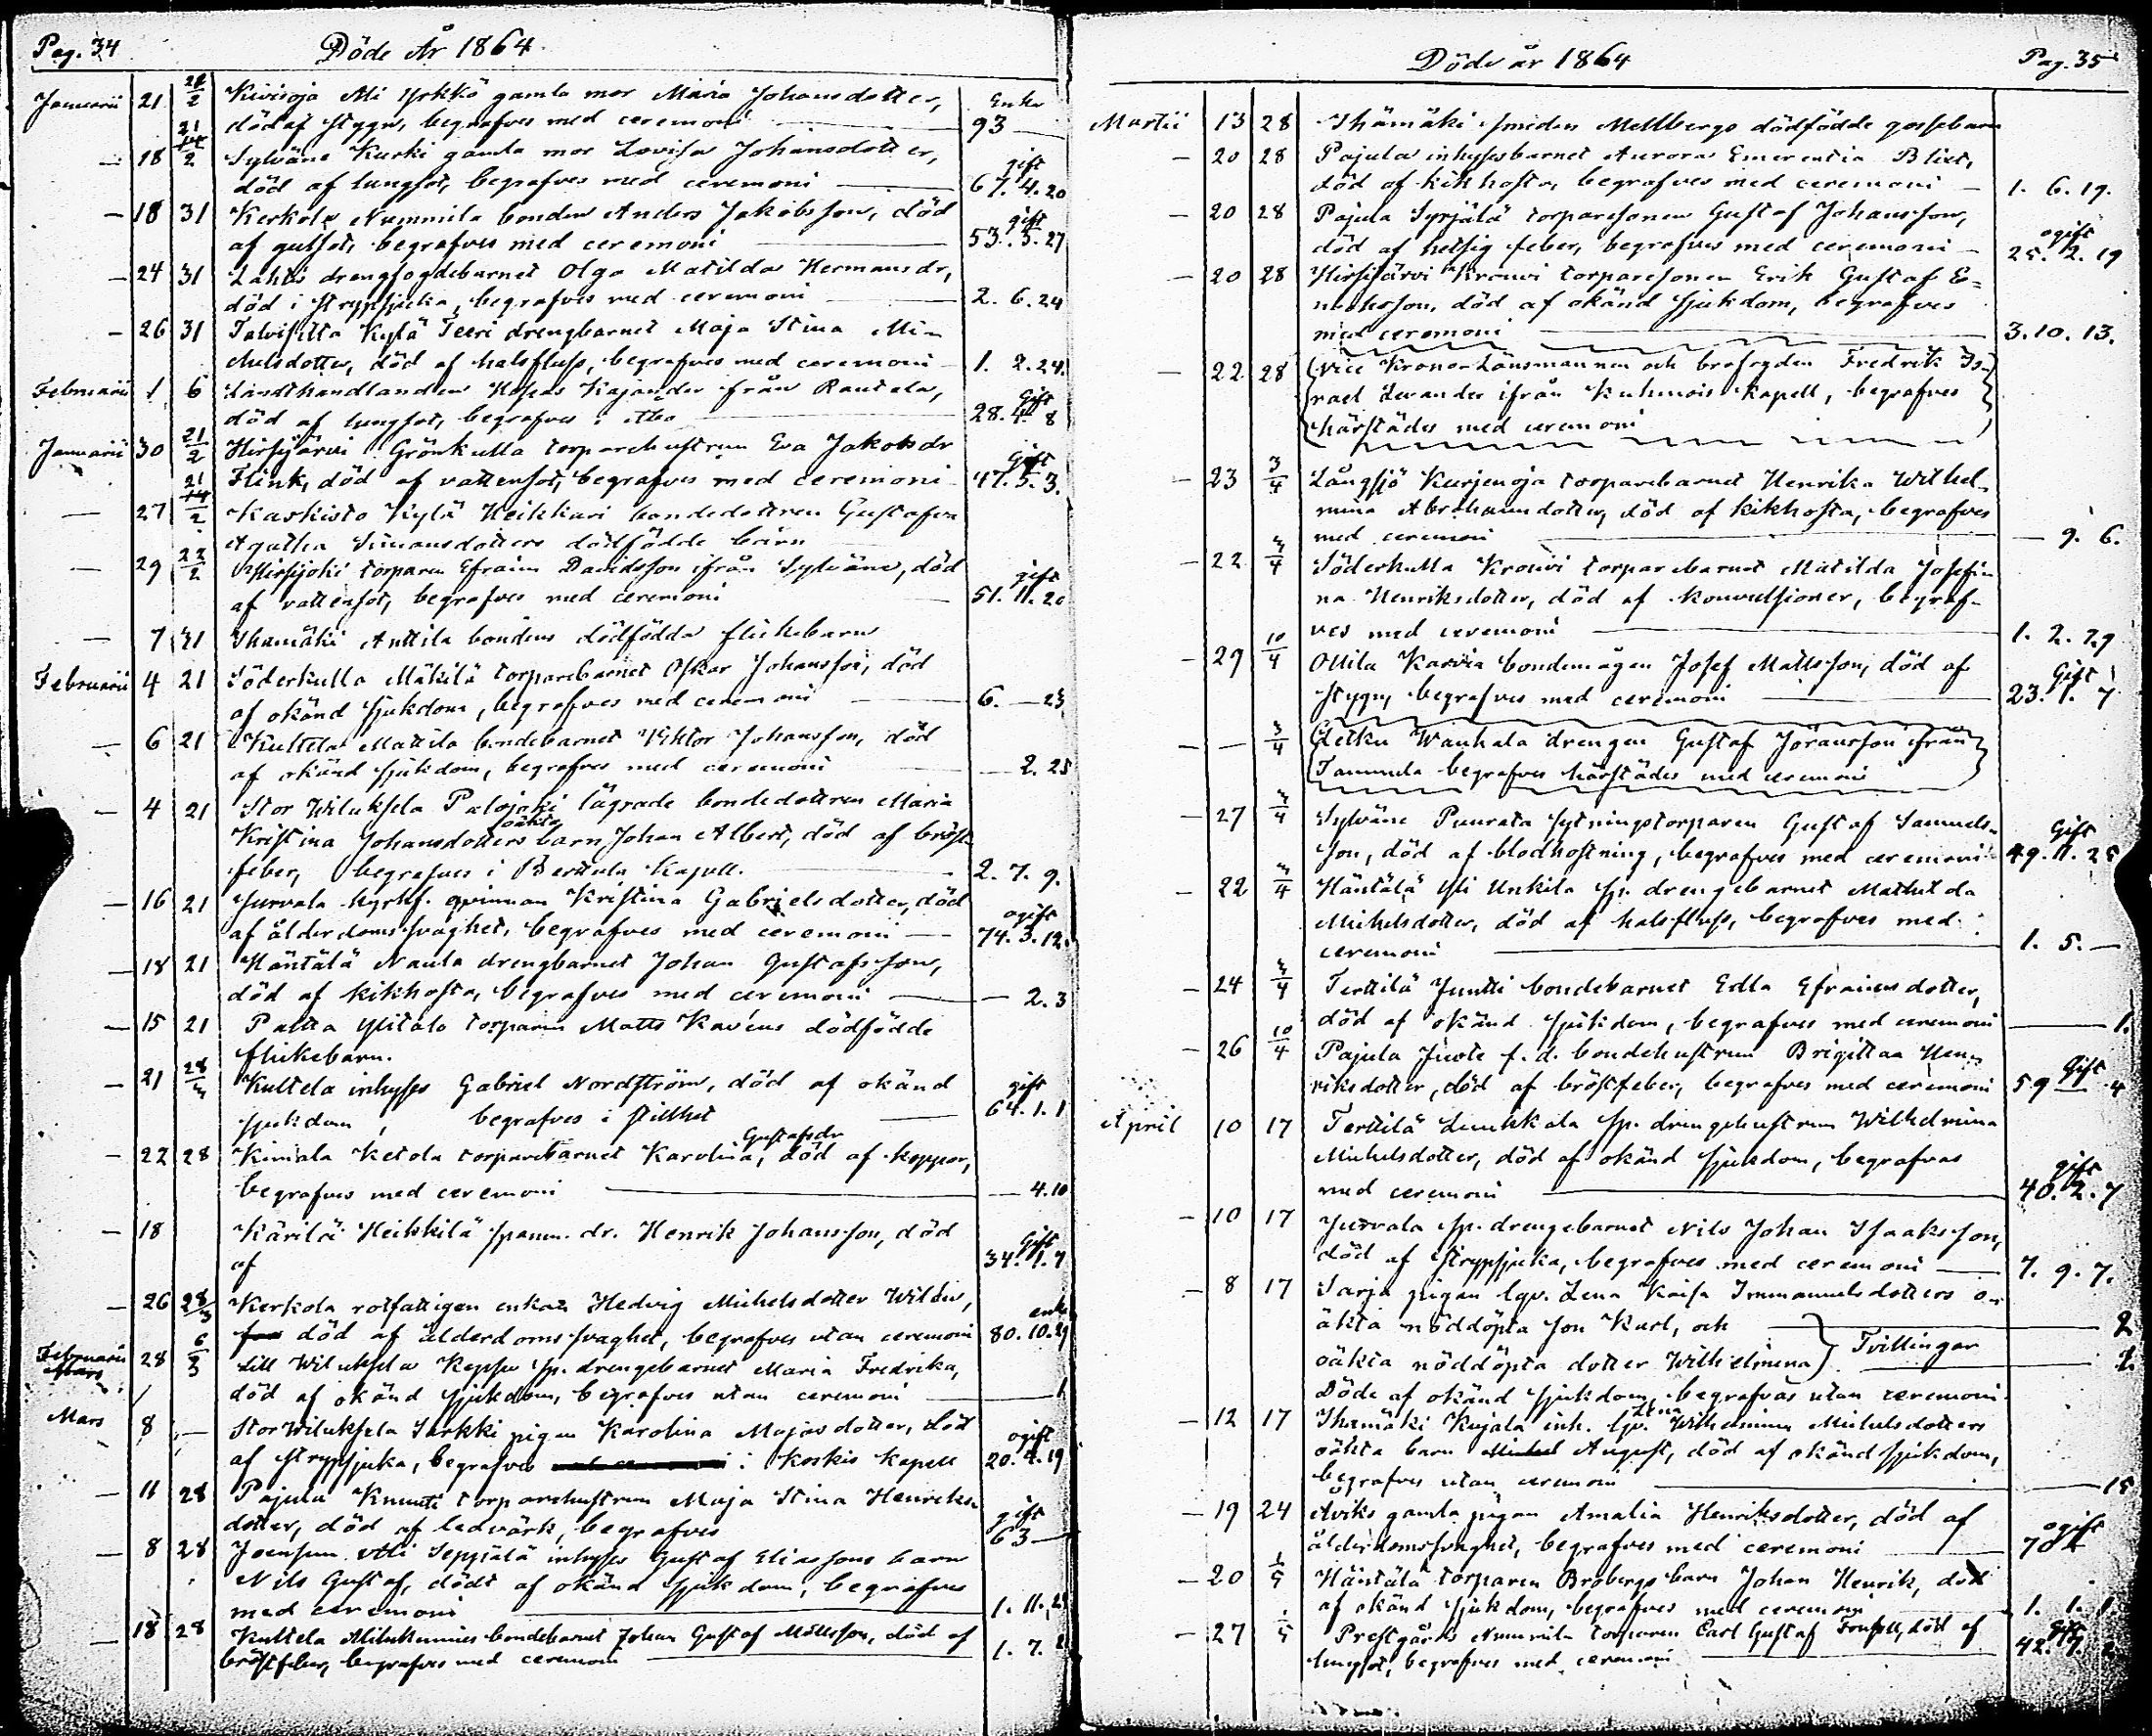 Pag. 34 Döde År 1864
Januarii 21 28/2 Kivisoja Ali Yrkkö gamla mor Maria Johansdotter, Enka
död af stygn, begrafves med ceremoni 93 —
— 18 21/2 Sylväne Kurki gamla mor Lovisa Johansdotter, gift
död af lungsot, begrafves med ceremoni 67. 4. 20
— 18 31 Kerkola Nummila bonden Anders Jakobsson, död gift
af gulsot, begrafves med ceremoni 53. 3. 27
— 24 31 Lahtis drengfogdebarnet Olga Matilda Hermansdr,
död i strypsjuka, begrafves med ceremoni 2. 6. 24
— 26 31 Talvisilta Kylä Teeri drengbarnet Maja Stina Mi-
chelsdotter, död af halsfluss, begrafves med ceremoni 1. 2. 24.
Februarii 1 6 Landthandlanden Kajander från Rautela, Gift
död af lungsot, begrafves i 28. 4. 8
Januarii 30 21/2 Hirsijärvi Grönkulla torparehustrun Eva Jakobsdr Gift
Flink, död af vattensot, begrafves med ceremoni 47. 5. 3.
— 27 21/2 Kaskisto Kylä Heikkari bondedottren Gustafva
Agatha Simonsdotters dödfödde barn
— 29 22/2 Hirsijoki torparen Efraim Davidsson ifrån Sylväne, död gift
af vattensot, begrafves med ceremoni 51. 11. 20
— 7 31 Ihamäki Anttila bondens dödfödda flickebarn
Februarii 4 21 Söderkulla Mäkilä torparebarnet Oskar Johansson, död
af okänd sjukdom, begrafves med ceremoni 6. — 23
— 6 21 Kultela Mattila bondebarnet Viktor Johansson, död
af okänd sjukdom, begrafves med ceremoni — 2. 25
— 4 21 Stor Wiluksela Palojoki lägrade bondedottren Maria
Kristina Johansdotters oäkta barn Johan Albert, död af bröst-
feber, begrafves i Berttula Kapell. 2. 7. 9.
— 16 21 Jurvala Kyrkf. qvinnan Kristina Gabrielsdotter, död ogift
af ålderdomssvaghet, begrafves med ceremoni 74. 3. 12.
— 18 21 Häntälä Naula drengbarnet Johan Gustafsson,
död af kikhosta, begrafves med ceremoni — 2. 3
— 15 21 Palta Ylitalo torparen Matts Kavéns dödfödde
flickebarn.
— 21 28/ Kultela inhyses Gabriel Nordström, död af okänd gift
sjukdom, begrafves i stillhet 64. 1. 1
— 22 28 Kimala Ketola torparebarnet Karolina Gustafsdr, död af koppor,
begrafves med ceremoni — 4. 10
— 18 Kärilä Heikkilä spanm. dr. Henrik Johansson, död Gift
af 34. 1. 7
— 26 28/3 Kerkola rotfattigen enkan Hedvig Michelsdotter Wilén, enka
död af ålderdomssvaghet, begrafves utan ceremoni 80. 10. 29
Februarii 28 6/3 Lill Wiluksela Keppo sp. drengebarnet Maria Fredrika,
död af okänd sjukdom, begrafves utan ceremoni 1
Mars 8 — Stor Wiluksela Sarkki pigan Karolina Majasdotter, död ogift
af strypsjuka, begrafves i Koskis Kapell 20. 4. 19
— 11 28 Pajula Knuuti torparehustrun Maja Stina Henriks-
dotter, död af ledvärk, begrafves gift 63 —
— 8 28 Joensuu Ali Seppälä inhyses Gustaf Eliassons barn
Nils Gustaf, dödt af okänd sjukdom, begrafves
med ceremoni 1. 11. 2
— 18 28 Kultela bondebarnet Johan Gustaf Mattsson, död af
bröstfeber, begrafves med ceremoni 1. 7. 2
Döde år 1864 Pag. 35
Martii 13 28 Ihämäki smeden Mellbergs dödfödde gossebarn
— 20 28 Pajula inhysesbarnet Aurora Emerentia Blixt,
död af kikhosta, begrafves med ceremoni 1. 6. 19.
— 20 28 Pajula Syrjälä torparesonen Gustaf Johansson, ogift
död af hetsig feber, begrafves med ceremoni 25. 2. 19
— 20 28 Hirsijärvi Krouvi torparesonen Erik Gustaf E-
nochsson, död af okänd sjukdom, begrafves
med ceremoni 3. 10. 13.
— 22 28 Vice Krono-Länsmannen och brofogden Fredrik Is-
rael Levander ifrån Kuhmois Kapell, begrafves
härstädes med ceremoni
— 23 3/4 Långsjö Kurjenoja torparebarnet Henrika Wilhel-
mina Abrahamsdotter, död af kikhosta, begrafves
med ceremoni — 9. 6.
— 22 3/4 Söderkulla Krouvi torparebarnet Matilda Josefi-
na Henriksdotter, död af konvulsioner, begraf-
ves med ceremoni 1. 2. 29
— 29 10/4 Ollila Karvia bondemågen Josef Mattsson, död af Gift
stygn, begrafves med ceremoni 23. 1. 7
— — 3/4 Letku Wanhala drengen Gustaf Göransson ifrån
Tammela begrafves härstädes med ceremoni
— 27 3/4 Sylväne Puurata sytningstorparen Gustaf Samuels- Gift
son, död af blodhostning, begrafves med ceremoni 49. 11. 25
— 22 3/4 Häntälä Yli Unkila sp. drengebarnet Mathilda
Michelsdotter, död af halsfluss, begrafves med
ceremoni 1. 5. —
— 24 3/4 Terttilä Juntti bondebarnet Edla Efraimsdotter,
död af okänd sjukdom, begrafves med ceremoni 1.
— 26 10/4 Pajula f. d. bondehustrun Brigitta Hen- Gift
riksdotter, död af bröstfeber, begrafves med ceremoni 59 — 4
April 10 17 Terttilä Luukkala sp. drengehustrun Wilhelmina
Michelsdotter, död af okänd sjukdom, begrafves gift
med ceremoni 40. 2. 7
— 10 17 Jurvala sp. drengebarnet Nils Johan Isaaksson,
död af strypsjuka, begrafves med ceremoni 7. 9. 7.
— 8 17 Sarja pigan lgv. Lena Kaisa Immanuelsdotters o-
äkta nöddöpta son Karl, och 2
oäkta nöddöpta dotter Wilhelmina } Tvillingar 2
Döde af okänd sjukdom, begrafvas utan ceremoni.
— 12 17 Ihamäki Kujala inh. lgv. Lena Wilhelmina Michelsdotters
oäkta barn August, död af okänd sjukdom,
begrafves utan ceremoni 15
— 19 24 Aviks gamla pigan Amalia Henriksdotter, död af ogift
ålderdomssvaghet, begrafves med ceremoni 70
— 20 1/5 Häntälä torparen Brobergs barn Johan Henrik, död
af okänd sjukdom, begrafves med ceremoni 1. 1. 1.
— 27 1/5 Prestgårds Nummila torparen Carl Gustaf död af gift
lungsot, begrafves med ceremoni 42. 7. 2